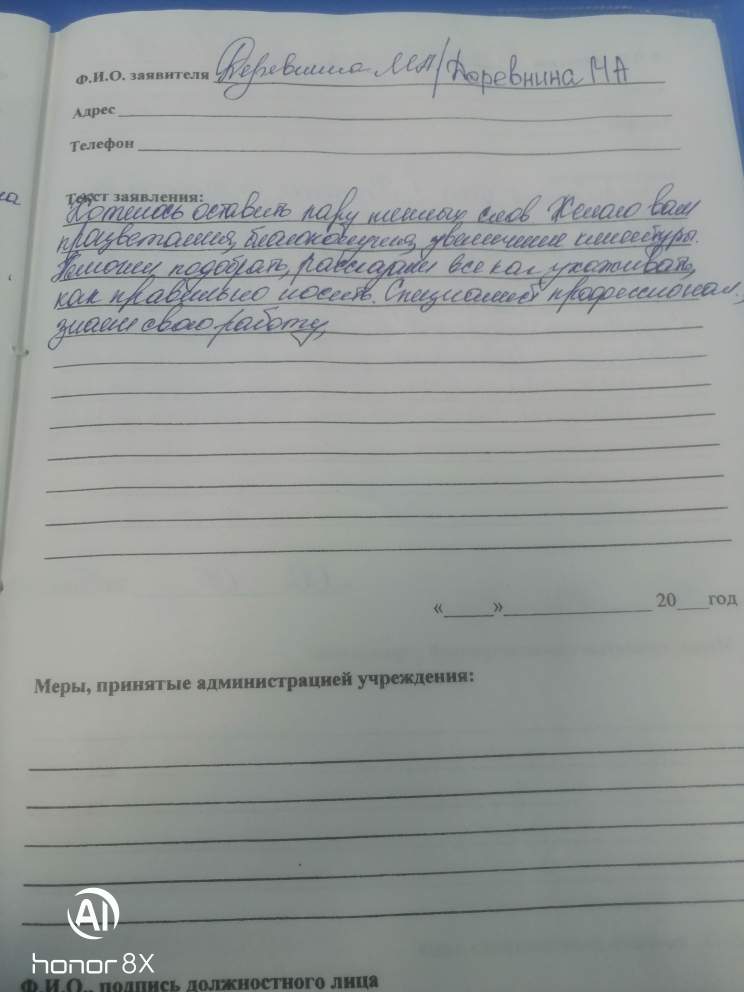 Ф.И.О. заявителя Деревнина МА/Даревнина МА
Адрес
Телефон
Текст заявления:
Хотелось оставить пару теплых слов Желаю вам
процветания, благополучия, увеличение клиентуры.
Помогли подобрать, рассказали все как ухаживать,
как правильно носить. Специалист профессионал,
знает свою работу,
« » 20 год
Меры, принятые администрацией учреждения:
AI
honor 8X
Ф.И.О., подпись должностного лица